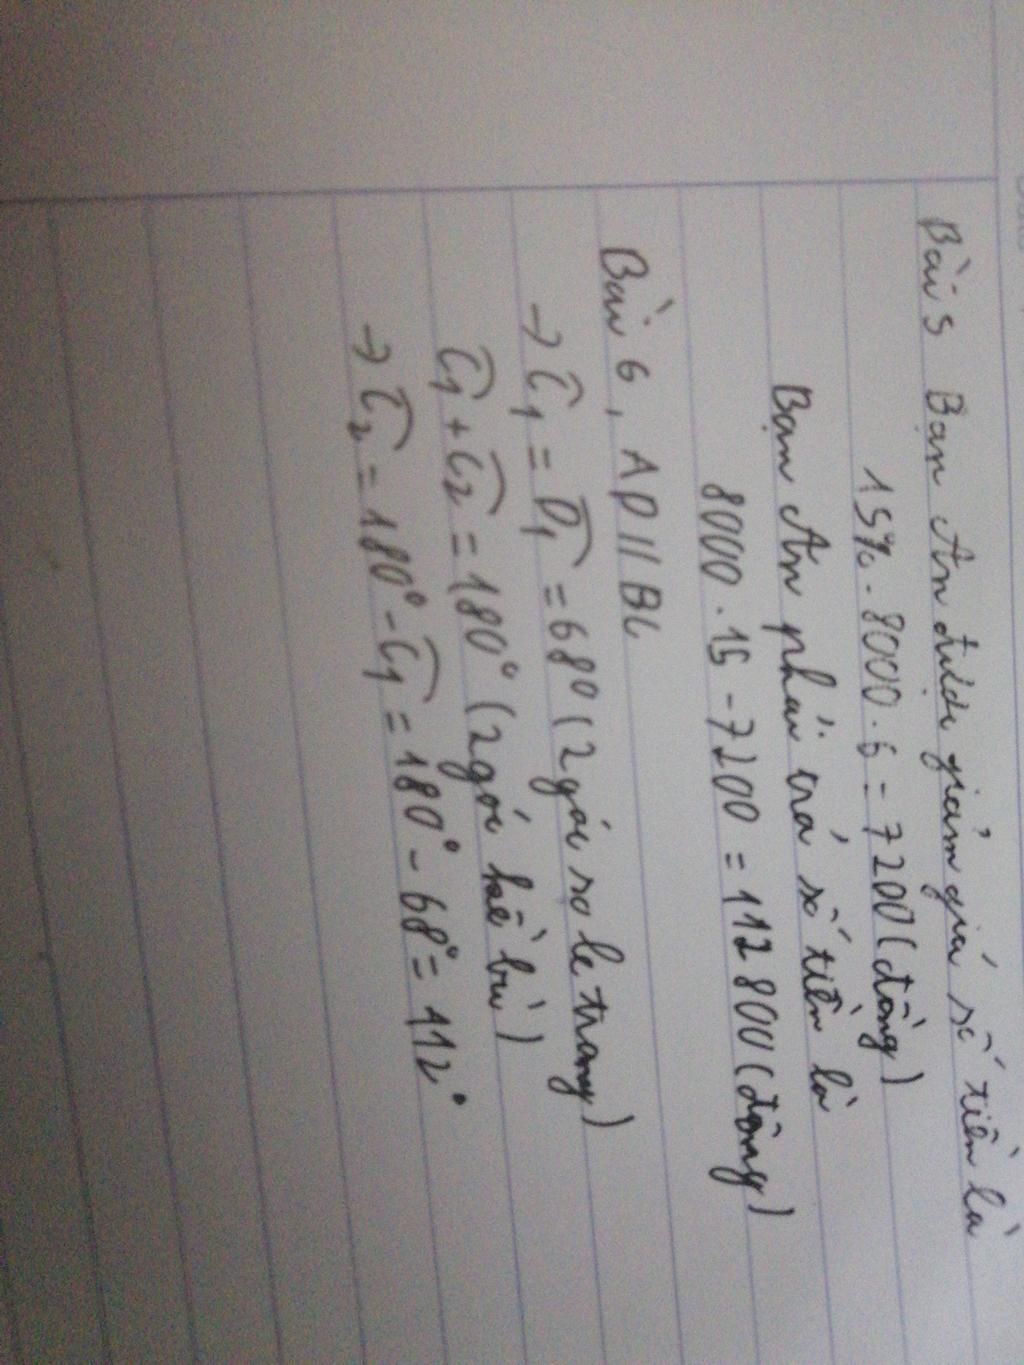 Bài 5 Bạn An được giảm giá số tiền là
15%. 8000. 6 = 7200 (đồng)
Bạn An phải trả số tiền là
8000. 15 - 7200 = 112 800 (đồng)
Bài 6, AD // BC
→ Ĉ₁ = D̂₁ = 68° (2 góc so le trong)
Ĉ₁ + Ĉ₂ = 180° (2 góc kề bù)
→ Ĉ₂ = 180° - Ĉ₁ = 180° - 68° = 112°